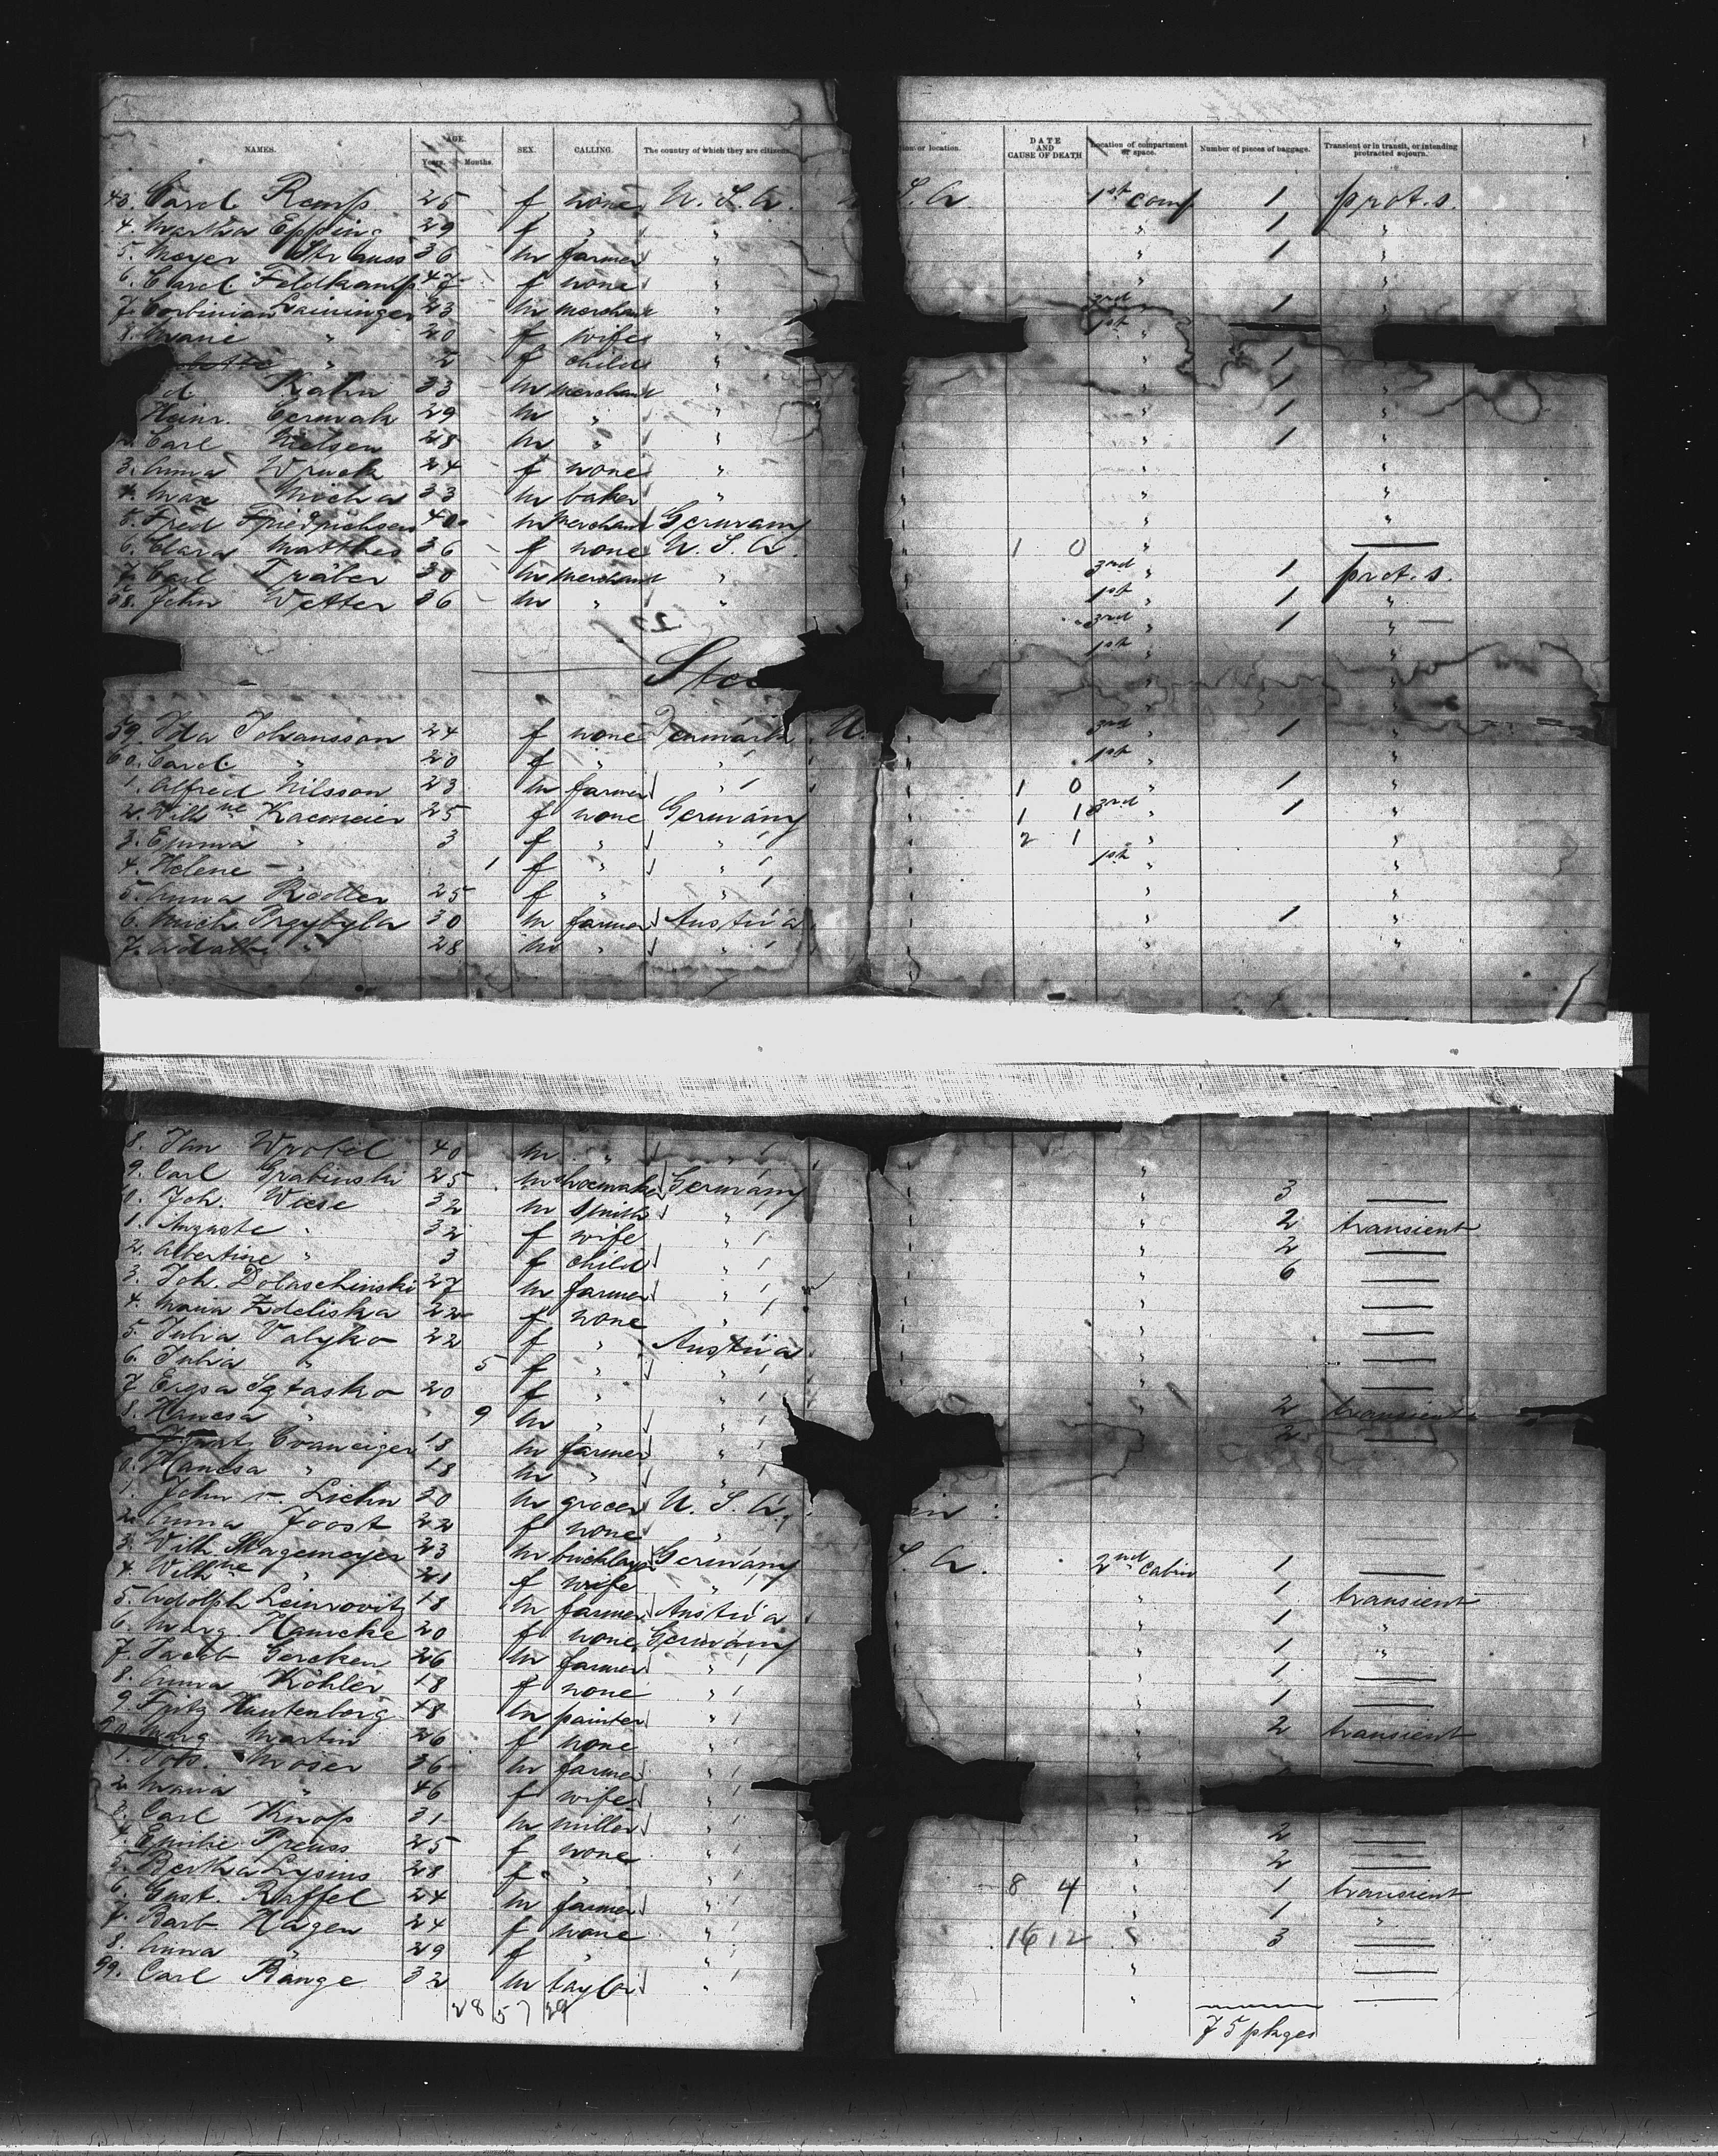 NAMES. AGE. Years. Months. SEX. CALLING. The country of which they are citizens.
43. Carol. Remp 25 f none U. S. A.
4. Martha Epping 29 f " "
5. Meyer Strauss 36 m farmer "
6. Carol. Feldkamp 47 f none "
7. Corbinian Laininger 23 m merchant "
8. Marie " 20 f wife "
" f child "
d Kahn 33 m merchant "
Heinr. Cermak 29 m " "
2. Carl Nielsen 28 m " "
3. Anna Wruck 24 f none "
4. Max Mocha 33 m baker "
5. Fred Friedrichsen 40 m merchant Germany
6. Clara Matthes 36 f none U. S. A.
7. Carl Träber 30 m merchant "
58. John Vetter 36 m " "
Stee
59. Ida Johansson 24 f none Denmark U.
60. Carol. " 20 f " "
1. Alfred Nilsson 23 m farmer "
2. Wilhne Kaemeier 25 f none Germany
3. Emma " 3 f " "
4. Helene " 1 f " "
5. Anna Rodler 25 f " "
6. Mich. Przybyla 30 m farmer Austria
7. Adalb. " 28 m " "
8. Jan Wrobel 40 m " "
9. Carl Grabinski 25 m shoemaker Germany
0. Joh. Wiese 32 m smith "
1. Auguste " 32 f wife "
2. Albertine " 3 f child "
3. Joh. Dolaschinski 27 m farmer "
4. Maria Zdeliska 22 f none "
5. Julia Valyko 22 f " Austria
6. Julia " 5 f " "
7. Ersa Sztasko 20 f " "
8. Hancsa " 9 m " "
Cvanciger 18 m farmer "
0. Hancsa " 18 m " "
1. John v. Liehn 20 m grocer U. S. A.
2. Anna Joost 22 f none "
3. Wilh. Hagemeyer 23 m bricklayer Germany
4. Wilhne " 21 f wife "
5. Adolph Leinrovitz 18 m farmer Austria
6. Marg. Hancke 20 f none Germany
7. Jacob Gercken 26 m farmer "
8. Anna Köhler 18 f none "
9. Fritz Hautenborg 18 m painter "
90. Marg. Martin 26 f none "
1. Joh. Moser 36 m farmer "
2. Maria " 46 f wife "
3. Carl Knop 31 m miller "
4. Emilie Preuss 25 f none "
5. Bertha Lysius 28 f " "
6. Gust. Raffel 24 m farmer "
7. Barb. Hagen 24 f none "
8. Anna " 29 f " "
99. Carl Range 32 m taylor "
28 57 29
ion or location. DATE AND CAUSE OF DEATH Location of compartment or space. Number of pieces of baggage. Transient or in transit, or intending protracted sojourn.
S. A. 1st comp 1 prot. s.
" 1 "
" 1 "
" "
3rd " 1 "
1st "
" 1
" 1 "
" 1 "
" 1 "
" "
" "
" "
1 0 "
3rd " 1 prot. s.
1st " 1 "
3rd " 1 "
1st " "
" "
3rd " 1 "
1st " "
1 0 " 1 "
1 1 3rd " 1 "
2 1 " "
1st " "
" "
" 1 "
" "
"
" 3
" 2 transient
" 2
" 6
"
"
"
"
" 2 transient
2
in :
S. A. 2nd Cabin 1
" 1 transient
" 1 "
" 1 "
" 1
" 1
" 2 transient
"
"
" 2
" 2
8 4 " 1 transient
" 1 "
16 12 " 3
"
"
75 pkges